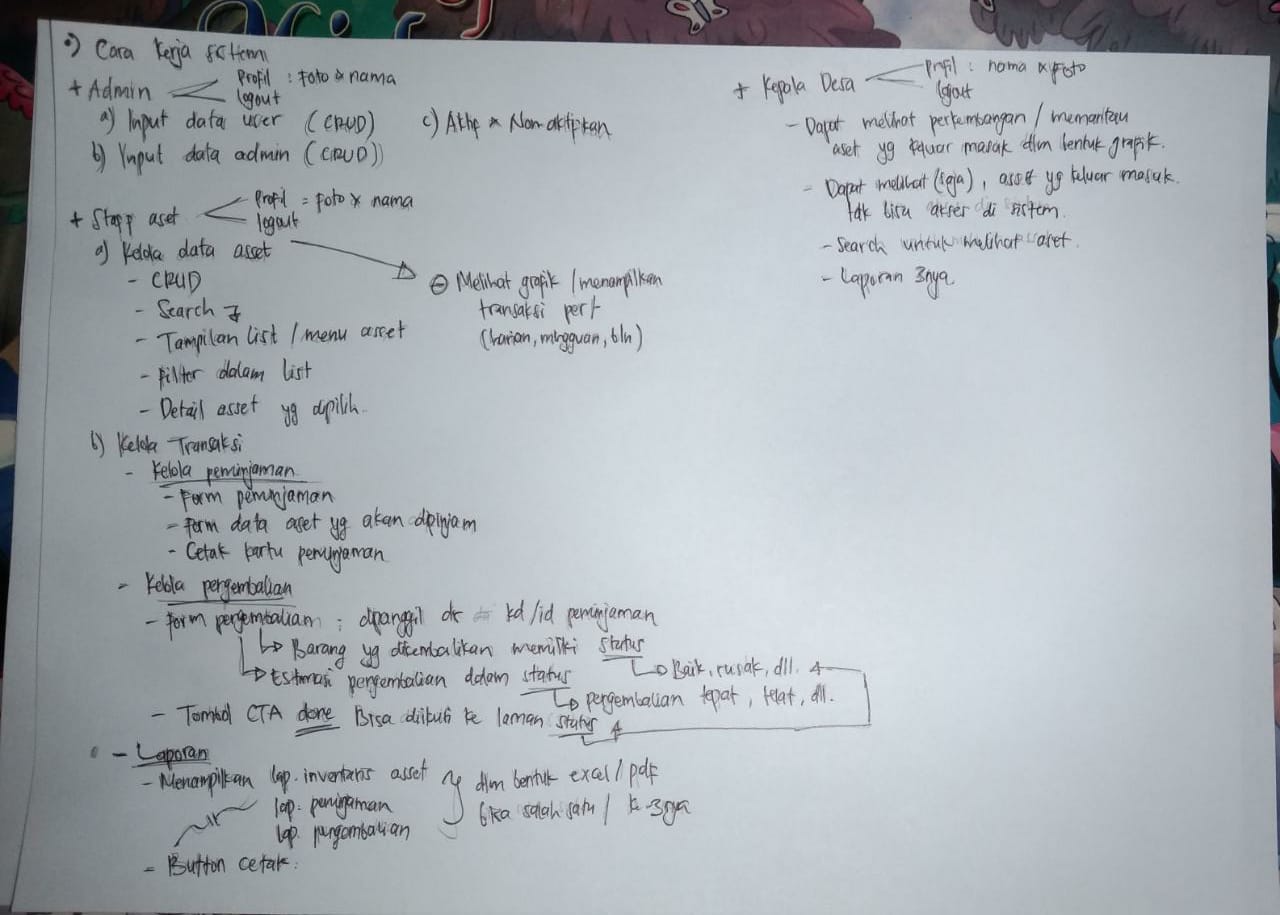 Cara kerja sistem
+ Admin
Profil : Foto & nama
logout
a) Input data user (CRUD)
c) Aktif & Nonaktifkan
b) Input data admin (CRUD)
+ Stapp aset
Profil = Foto & nama
logout
a) Kelola data asset
- CRUD
- Search
- Tampilan list / menu asset
- Filter dalam list
- Detail asset yg dipilih.
Melihat grafik / menampilkan
transaksi pert
(harian, mingguan, bln)
b) Kelola Transaksi
- Kelola peminjaman
- Form peminjaman
- Form data aset yg akan dipinjam
- Cetak kartu peminjaman
- Kelola pengembalian
- Form pengembalian : dipanggil dr kd/id peminjaman
Barang yg dikembalikan memiliki status
Baik, rusak, dll.
Estimasi pengembalian dalam status
pengembalian tepat, telat, dll.
- Tombol CTA done Bisa diikuti ke laman status
- Laporan
- Menampilkan lap. inventaris asset
lap. peminjaman
lap. pengembalian
dlm bentuk excel / pdf
bisa salah satu / ke 3nya
= Button cetak.
+ Kepala Desa
Profil : nama & Foto
logout
- Dapat melihat perkembangan / memantau
aset yg keluar masuk dlm bentuk grafik.
- Dapat melihat (saja), asset yg keluar masuk.
tdk bisa akses di sistem.
- Search untuk melihat aset.
- Laporan 3nya